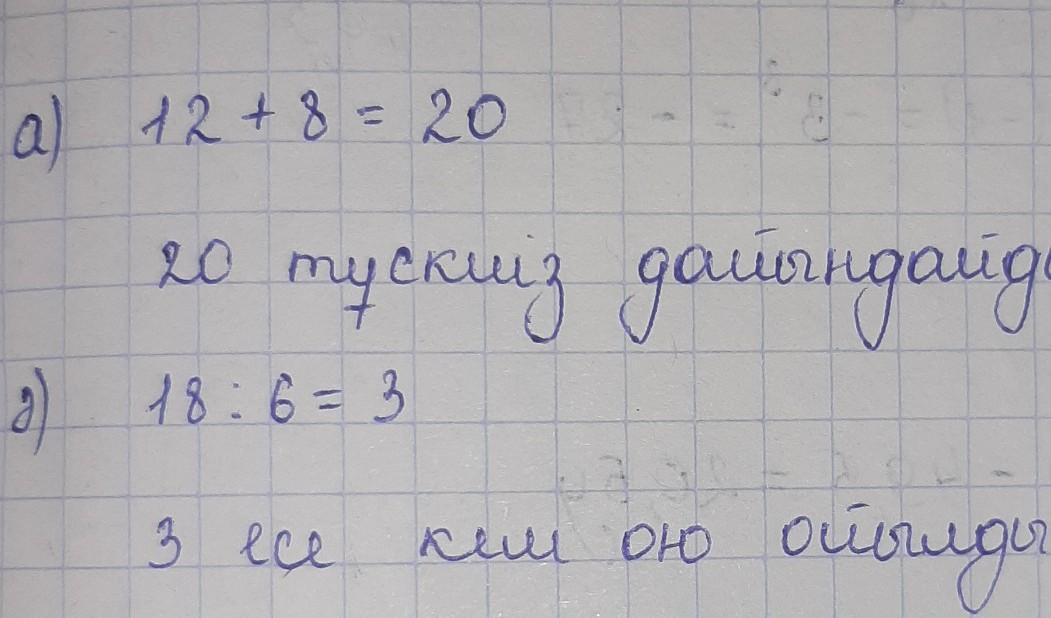 а) 12 + 8 = 20
20 тұскиіз дайындайды
ә) 18 : 6 = 3
3 есе кем ою ойылды